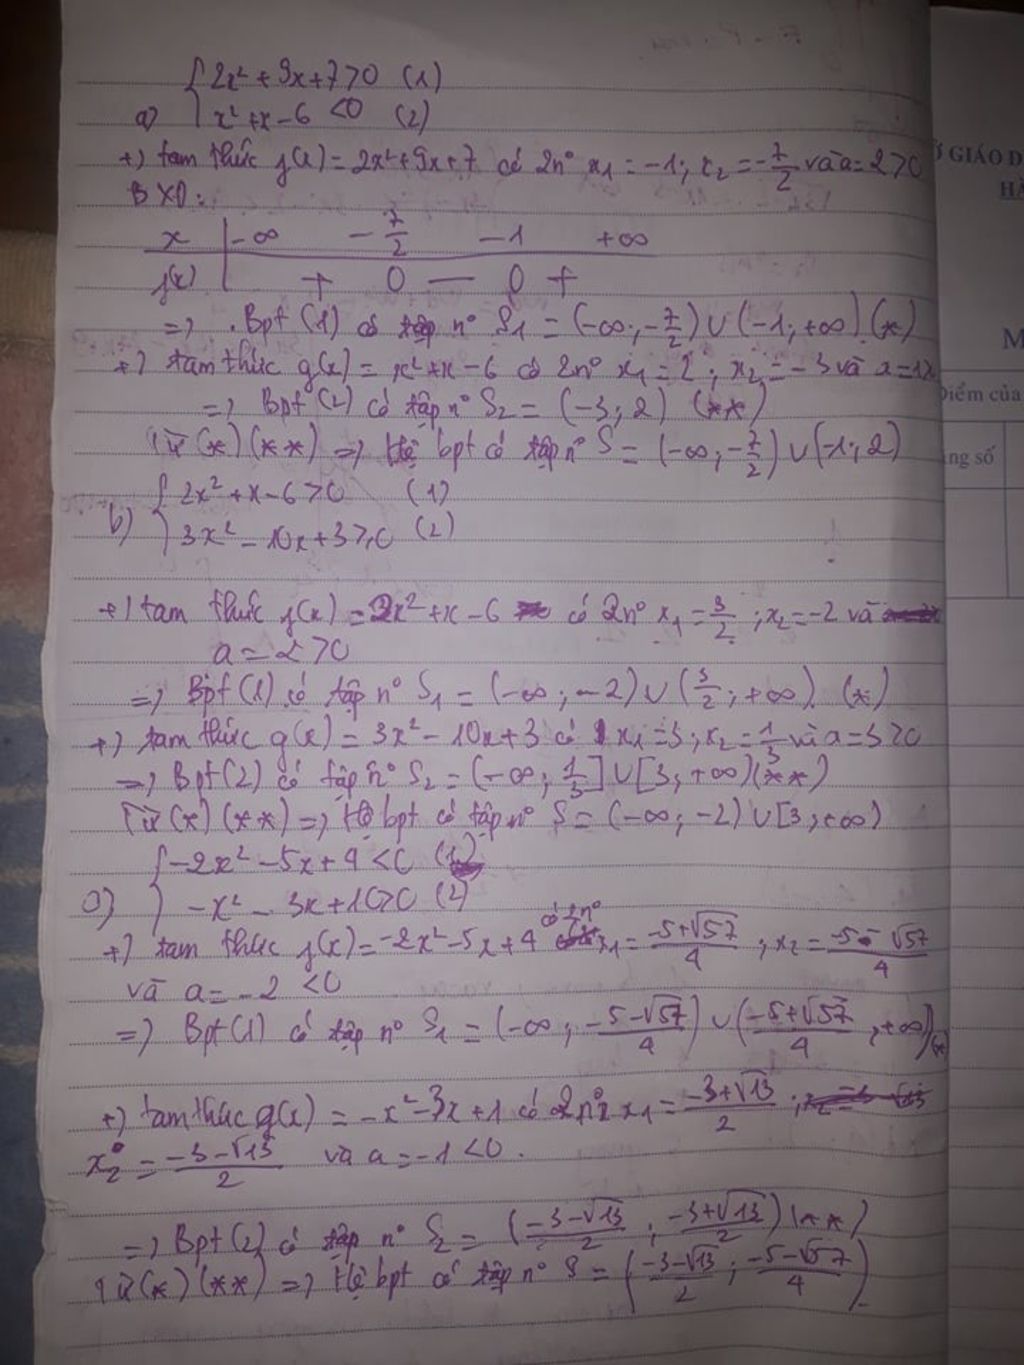 a) { 2x² + 9x + 7 > 0 (1)
x² + x - 6 < 0 (2)
+) tam thức f(x) = 2x² + 9x + 7 có 2n° x₁ = -1; x₂ = -7/2 và a = 2 > 0
BXD:
x | -∞ -7/2 -1 +∞
f(x) | + 0 — 0 +
=> Bpt (1) có tập n° S₁ = (-∞; -7/2) ∪ (-1; +∞) (*)
+) tam thức g(x) = x² + x - 6 có 2n° x₁ = 2; x₂ = -3 và a = 1
=> Bpt (2) có tập n° S₂ = (-3; 2) (**)
Từ (*) (**) => Hệ bpt có tập n° S = (-∞; -7/2) ∪ (-1; 2)
b) { 2x² + x - 6 > 0 (1)
3x² - 10x + 3 ≥ 0 (2)
+) tam thức f(x) = 2x² + x - 6 có 2n° x₁ = 3/2; x₂ = -2 và
a = 2 > 0
=> Bpt (1) có tập n° S₁ = (-∞; -2) ∪ (3/2; +∞) (*)
+) tam thức g(x) = 3x² - 10x + 3 có x₁ = 3; x₂ = 1/3 và a = 3 > 0
=> Bpt (2) có tập n° S₂ = (-∞; 1/3] ∪ [3; +∞) (**)
Từ (*) (**) => Hệ bpt có tập n° S = (-∞; -2) ∪ [3; +∞)
c) { -2x² - 5x + 4 < 0 (1)
-x² - 3x + 1 > 0 (2)
+) tam thức f(x) = -2x² - 5x + 4 có 2n° x₁ = (-5 + √57)/4; x₂ = (-5 - √57)/4
và a = -2 < 0
=> Bpt (1) có tập n° S₁ = (-∞; (-5 - √57)/4) ∪ ((-5 + √57)/4; +∞) (*)
+) tam thức g(x) = -x² - 3x + 1 có 2n° x₁ = (-3 + √13)/2;
x₂ = (-3 - √13)/2 và a = -1 < 0.
=> Bpt (2) có tập n° S₂ = ((-3 - √13)/2; (-3 + √13)/2) (**)
Từ (*) (**) => Hệ bpt có tập n° S = ((-3 - √13)/2; (-5 - √57)/4)
GIÁO D
HÀ
M
Điểm của
ng số